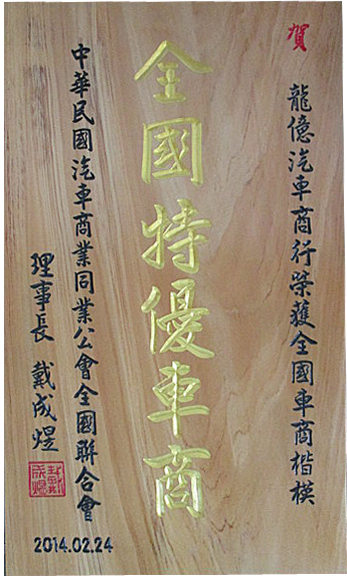 賀
龍億汽車商行榮獲全國車商楷模
全國特優車商
中華民國汽車商業同業公會全國聯合會
理事長 戴成煜
2014.02.24